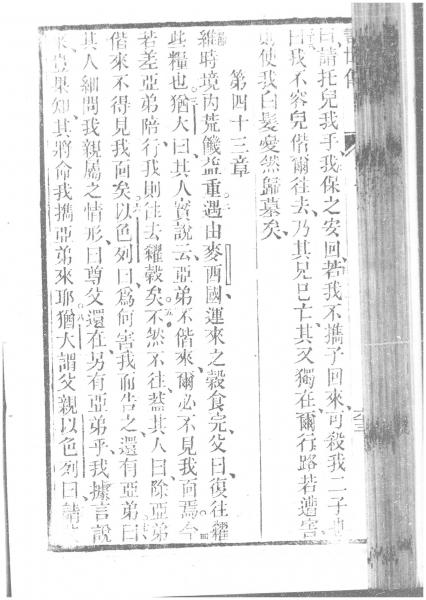 曰、請托兒我手、我保之安回、若我不攜子回來、可殺我二子
曰、我不容兒偕爾往去、乃其兄已亡、其又獨在、爾行路若遭害
則使我白髮憂然歸墓矣、
第四十三章
維時境內荒饑益重、遇由麥西國運來之穀食完、父曰、復往糴
此糧也、猶大曰、其人實說云、亞弟不偕來、爾必不見我面焉、今
若差亞弟陪行、我則往去糴穀矣、不然不往、蓋其人曰、除亞弟
偕來、不得見我面矣、以色列曰、爲何害我、而告之還有亞弟、曰
其人細問我親屬之情形、曰、尊父還在、另有亞弟乎、我據言說
來、豈果知其將命我攜亞弟來耶、猶大謂父親以色列曰、請